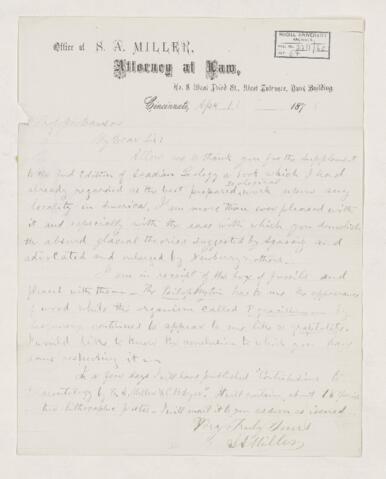 McGILL UNIVERSITY
ARCHIVES
Office of S. A. MILLER,
Attorney at Law,
No. 8 West Third St., West Entrance, Bank Building
Cincinnati, 187
Dawson
My Dear Sir:
Allow me to thank you for the Supplement
to the 2nd Edition of Acadian Geology a book which I had
already regarded as the best prepared geological work upon any
locality in America. I am more than ever pleased with
it and especially with the ease with which you demolish
the absurd glacial theories suggested by Agassiz and
advocated and enlarged by Newberry & others.
I am in receipt of the box of fossils and
pleased with them. The Psilophyton has to me the appearance
of wood while the organism called by
continues to appear to me like a graptolite.
I would like to know the conclusion to which you have
come respecting it
In a few days I will have published "Contributions to
Paleontology by S. A. Miller & C. B. Dyer". It will contain about 16 pages
two lithographic plates. I will mail it to you as soon as issued.
Very Truly Yours
S A Miller